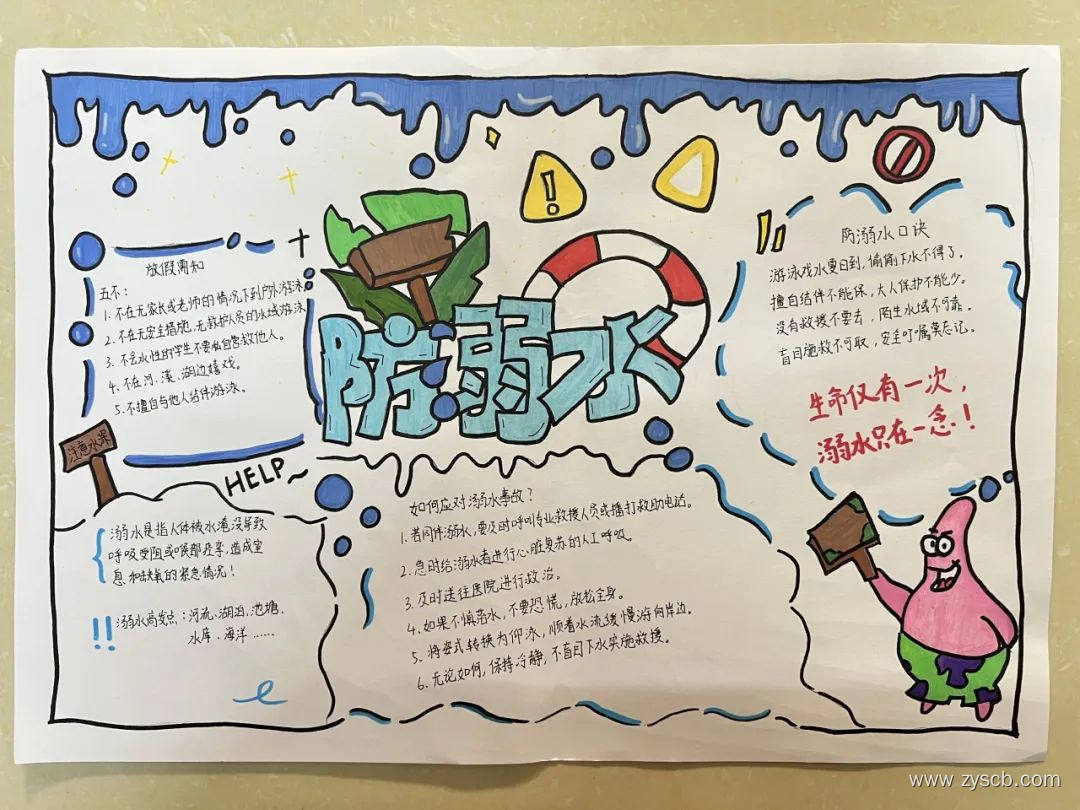 放假需知
五不：
1. 不在无家长或老师的情况下到户外游泳
2. 不在无安全措施，无救护人员的水域游泳
3. 不会水性的学生不要私自营救他人。
4. 不在河、溪、湖边嬉戏。
5. 不擅自与他人结伴游泳。
注意水深
HELP~
溺水是指人体被水淹没导致
呼吸受阻或喉部痉挛，造成窒
息和缺氧的紧急情况！
溺水高发点：河流、湖泊、池塘、
水库、海洋……
防溺水
如何应对溺水事故？
1. 若同伴溺水，要及时呼叫专业救援人员或播打救助电话。
2. 急时给溺水者进行心脏复苏的人工呼吸。
3. 及时送往医院进行救治。
4. 如果不慎落水，不要恐慌，放松全身。
5. 将姿式转换为仰泳，顺着水流缓慢游向岸边。
6. 无论如何，保持冷静，不盲目下水实施救援。
防溺水口诀
游泳戏水夏日到，偷偷下水不得了。
擅自结伴不能保，大人保护不能少。
没有救援不要去，陌生水域不可靠。
盲目施救不可取，安全叮嘱莫忘记。
生命仅有一次，
溺水只在一念！
www.zyscb.com